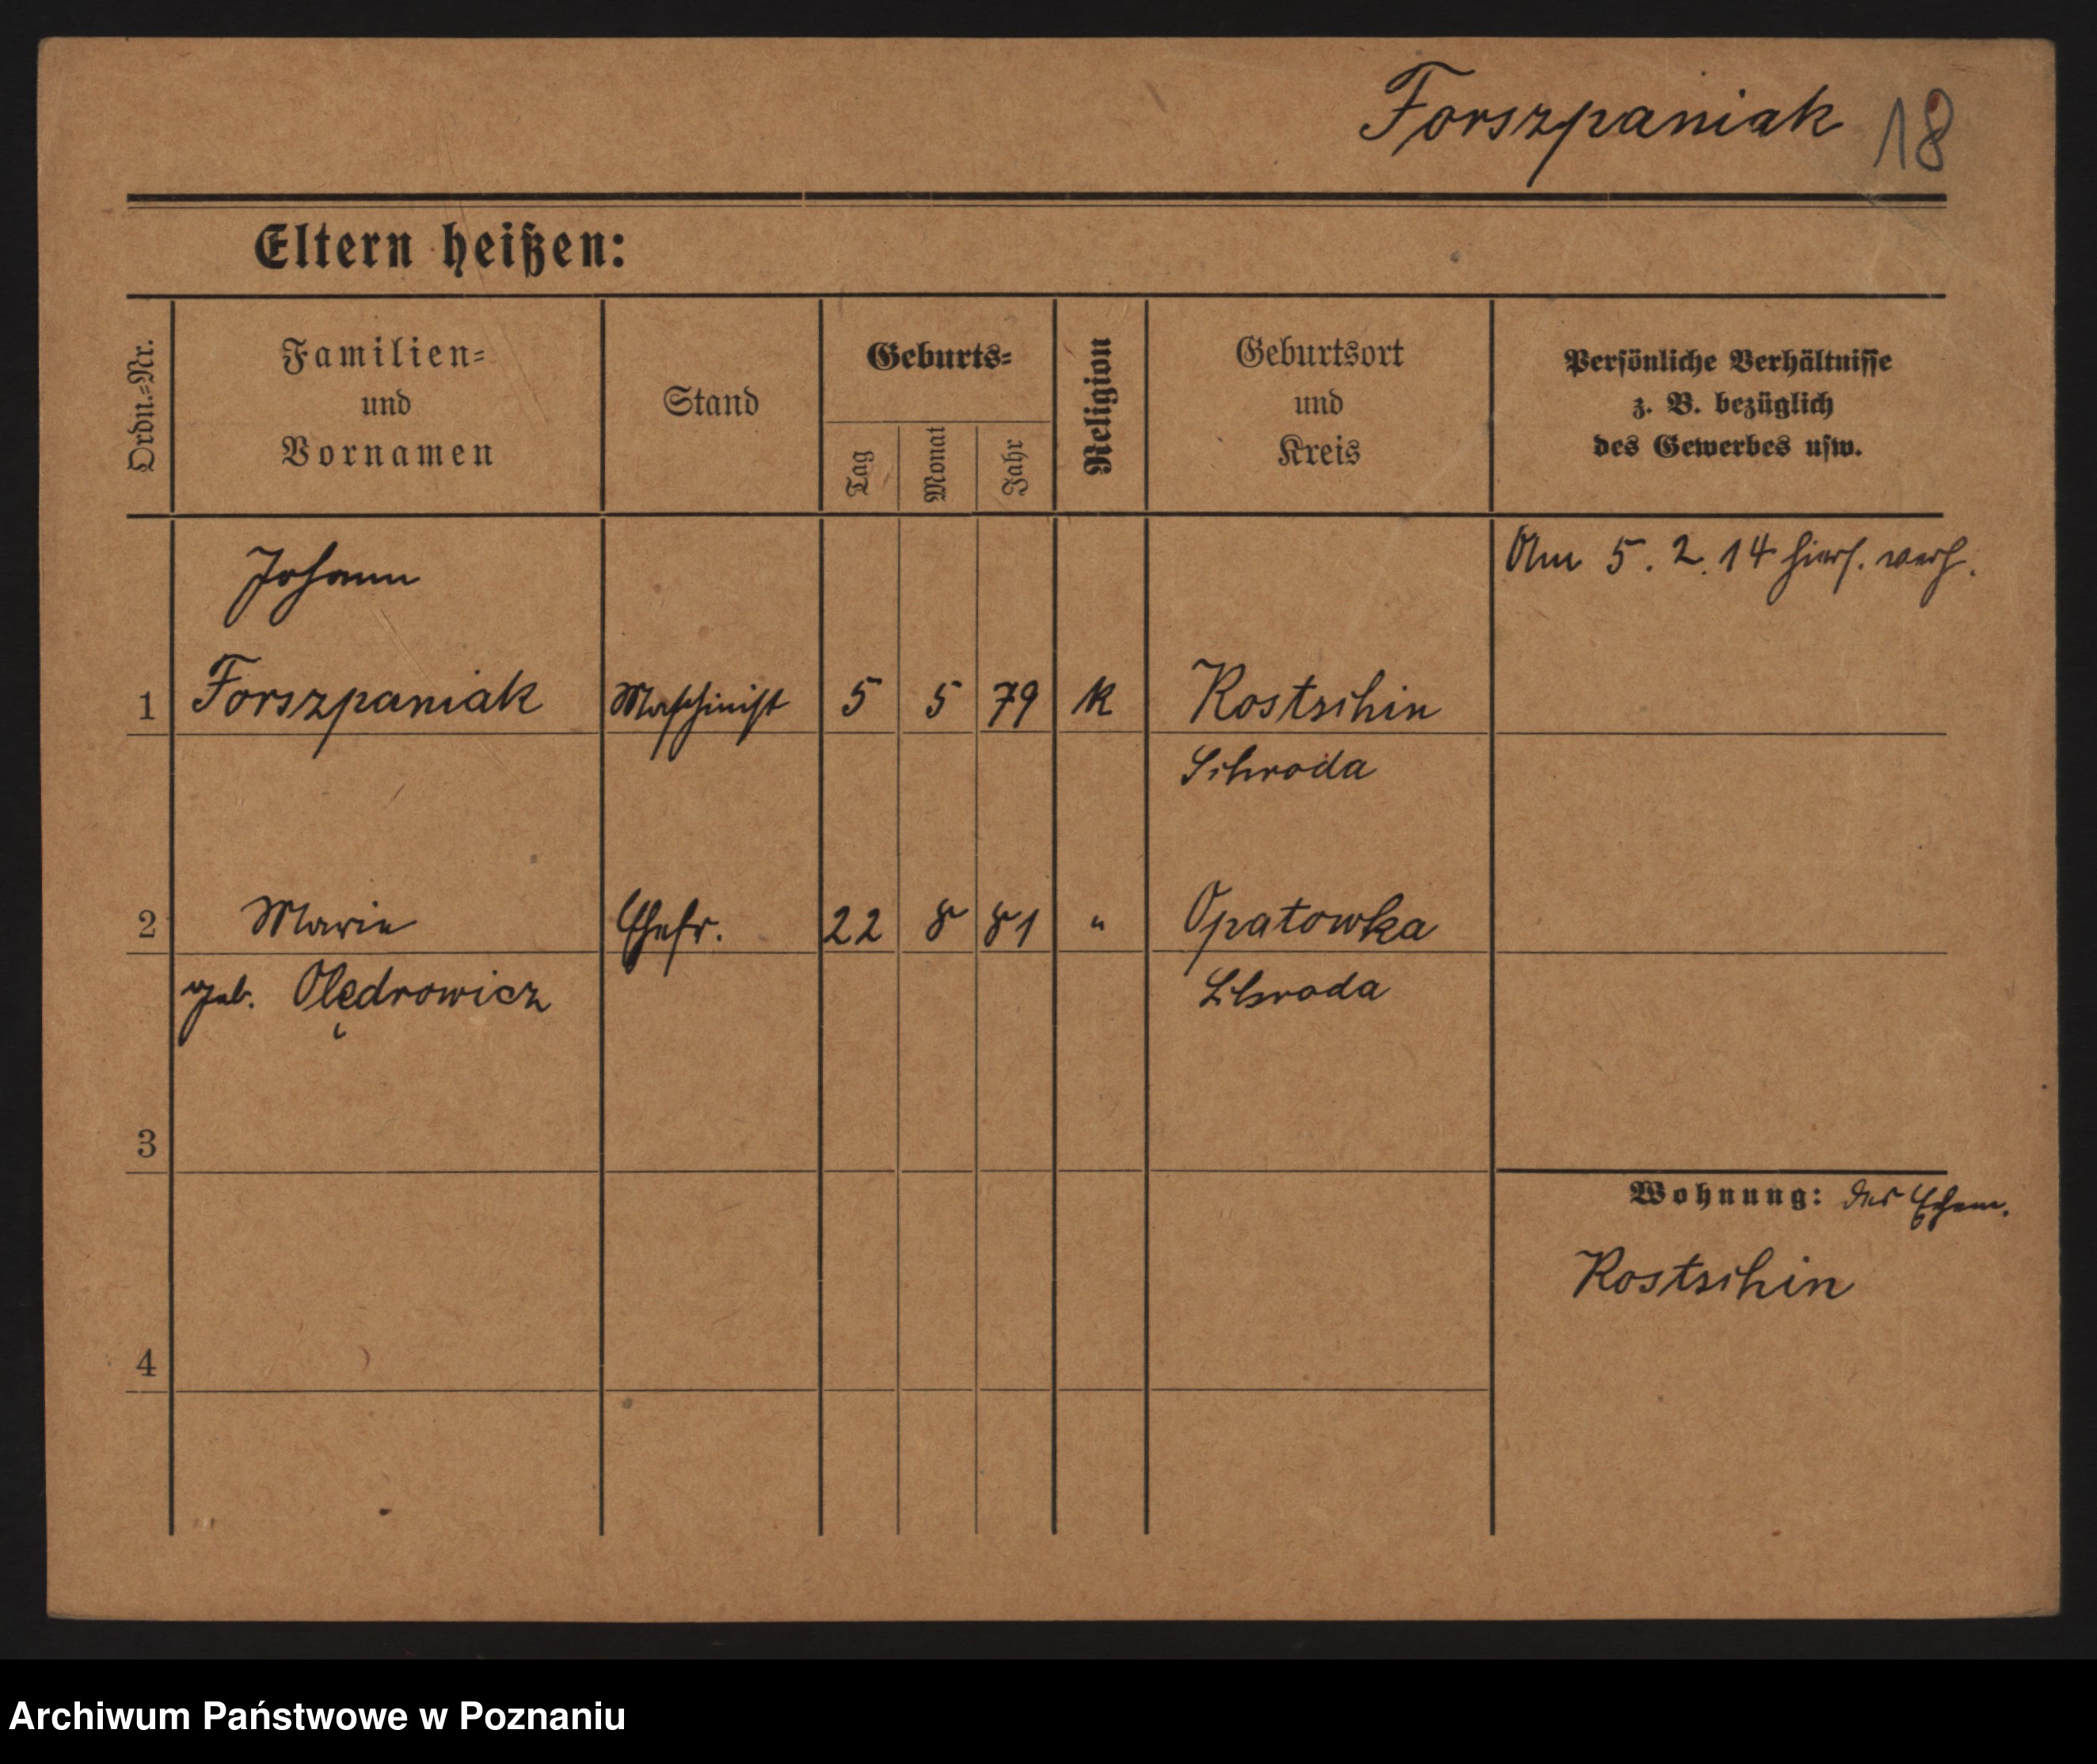 Forszpaniak 18
Eltern heißen:
Ordn.-Nr.
Familien-
und
Vornamen
Stand
Geburts-
Tag
Monat
Jahr
Religion
Geburtsort
und
Kreis
Persönliche Verhältnisse
z. B. bezüglich
des Gewerbes usw.
Johann
Am 5. 2. 14 hiers. verh.
1 Forszpaniak Maschinist 5 5 79 k Kostschin
Schroda
2 Marie Ehefr. 22 8 81 " Opatowka
geb. Olędrowicz Schroda
3
Wohnung: der Ehem.
Kostschin
4
Archiwum Państwowe w Poznaniu